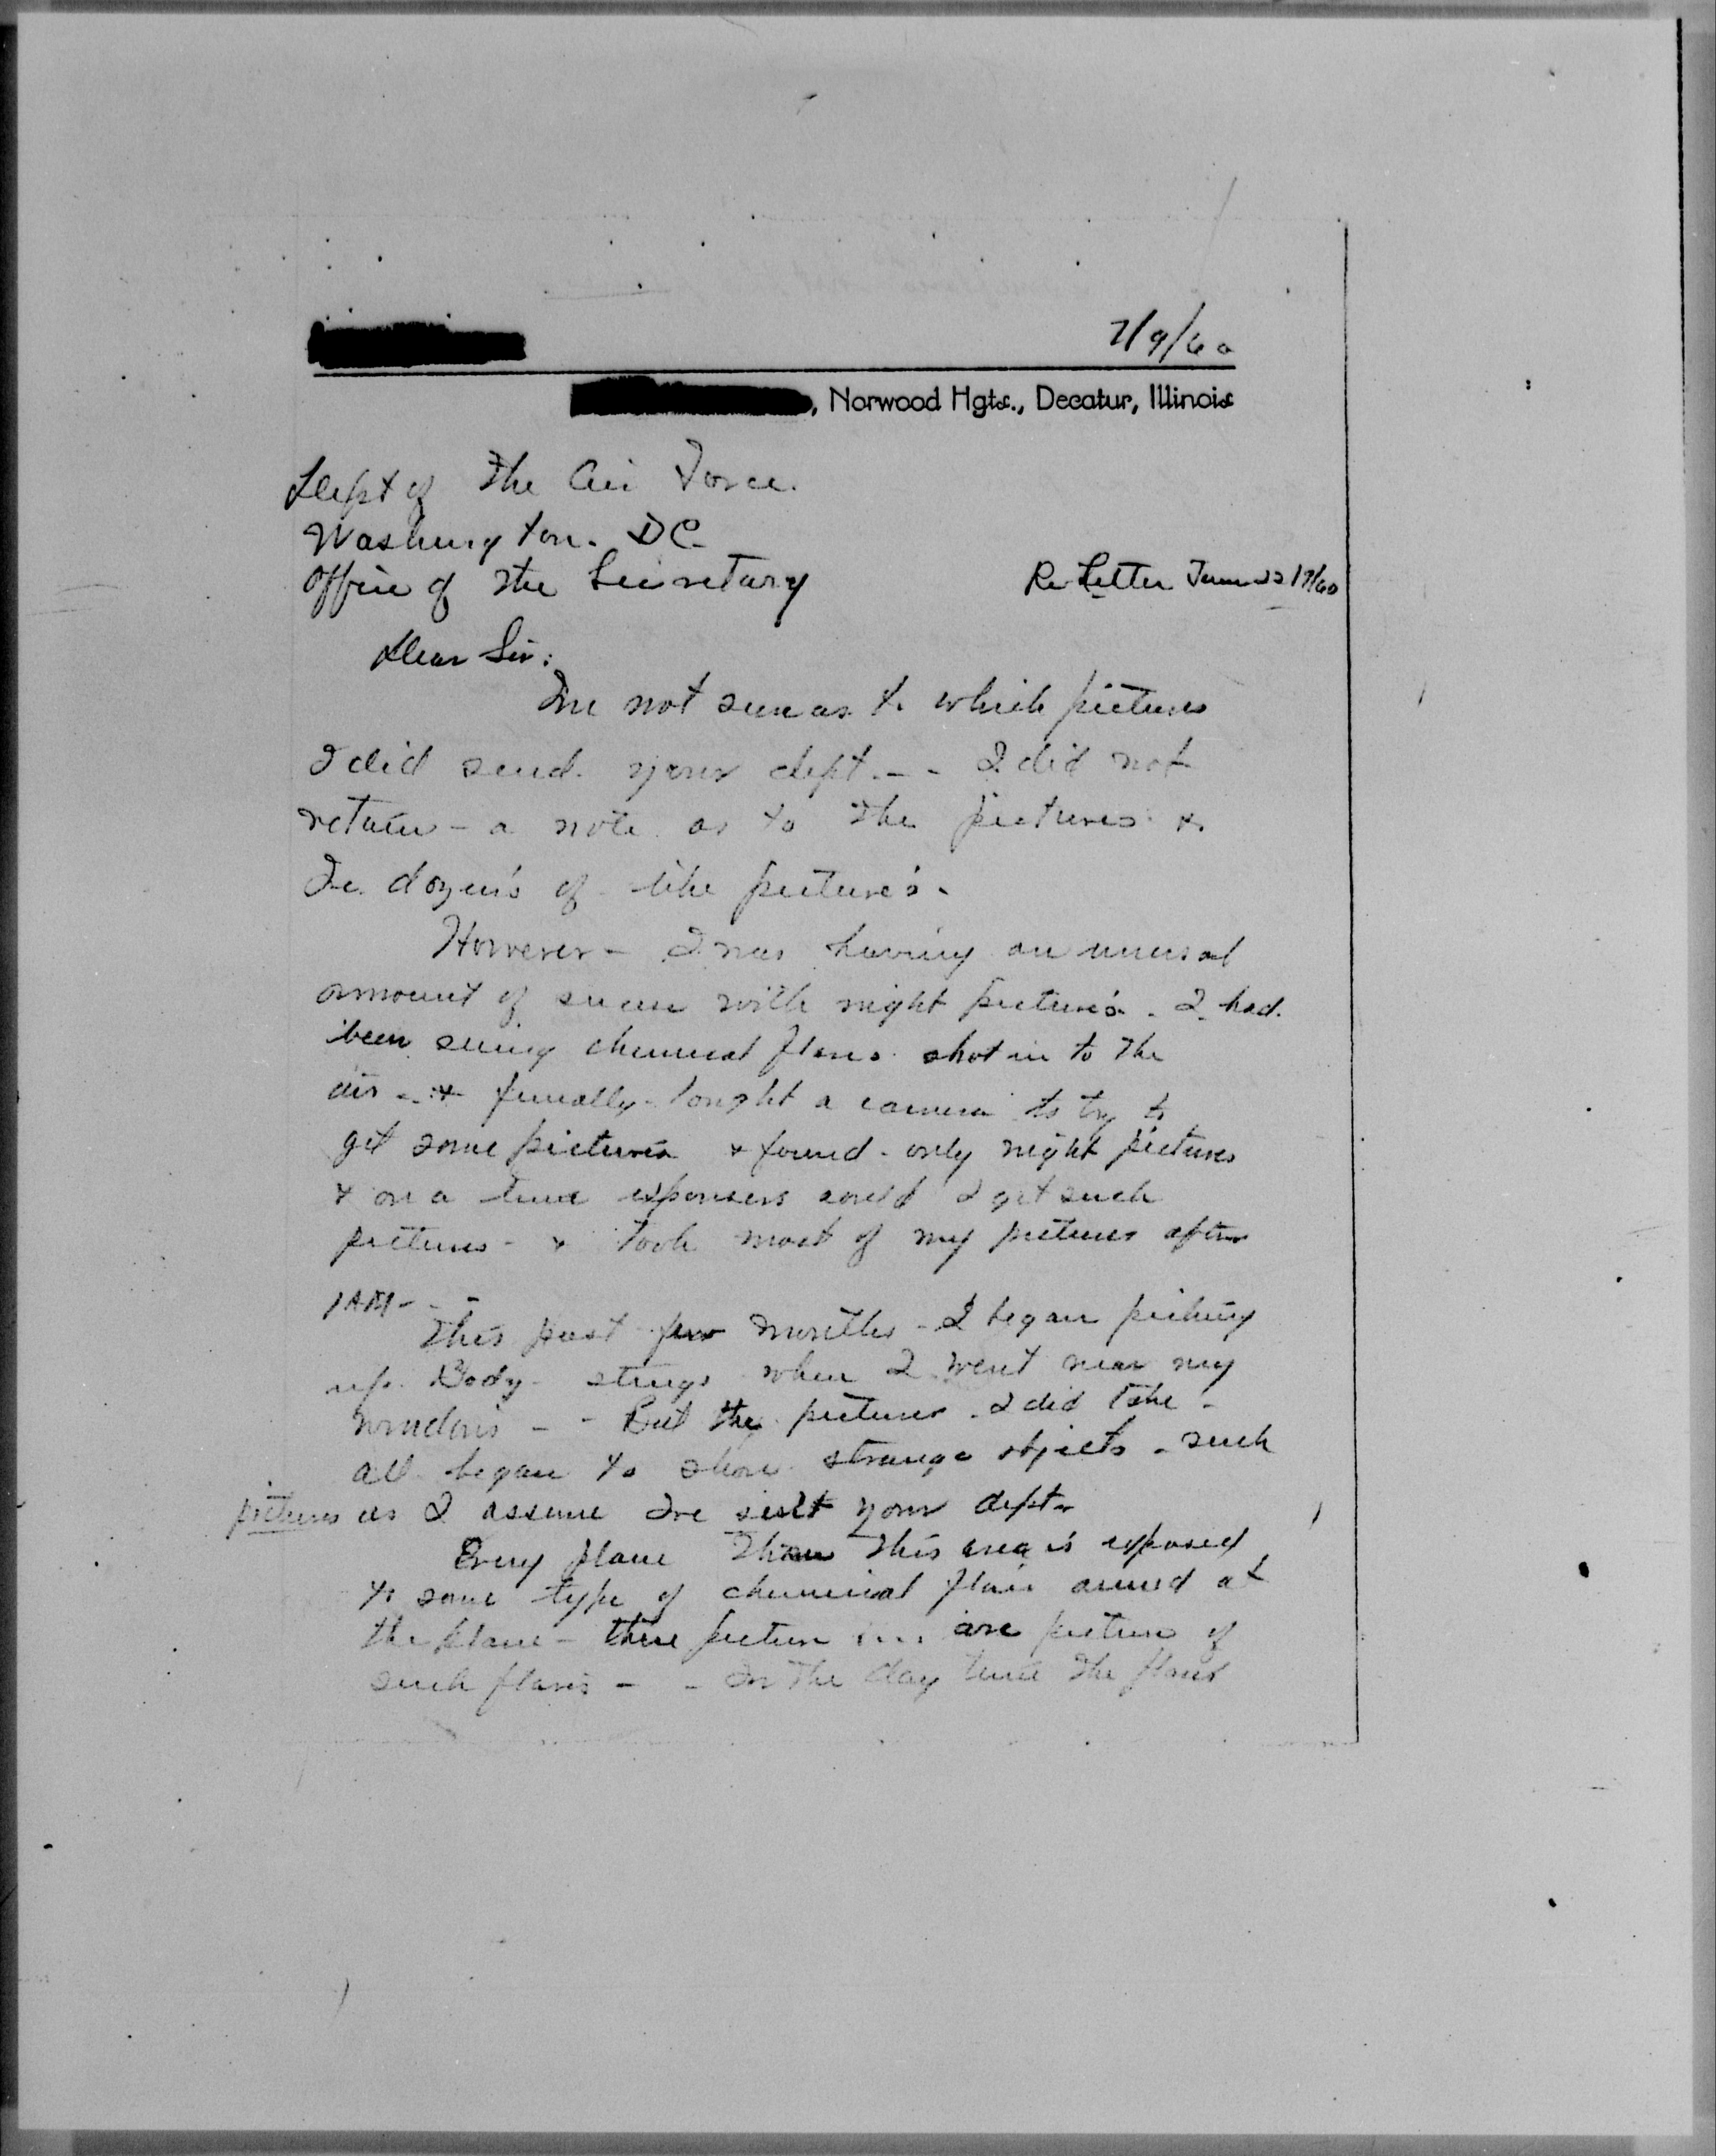 7/9/60
, Norwood Hgts., Decatur, Illinois
Dept of the Air Force.
Washington. DC.
Office of the Secretary
Re Letter June 22 1960
Dear Sir:
I'm not sure as to which pictures
I did send your dept. - - I did not
retain - a note as to the pictures &
I've dozen's of like picture's -
However - I was having an unusal
amount of success with night picture's. I had
been seeing chemical flares shot in to the
air - & finally bought a camera to try to
get some pictures & found - only night pictures
& on a time exposures could I get such
pictures - & took most of my pictures after
1 AM - - -
This past few months - I began picking
up Body - stings when I went near my
windows - - But the pictures I did take -
all began to show strange objects - such
pictures as I assume I've sent your dept.
Every plane thru this area is exposed
to some type of chemical flair aimed at
the plane - these picture are picture of
such flares - - In the day time the flares